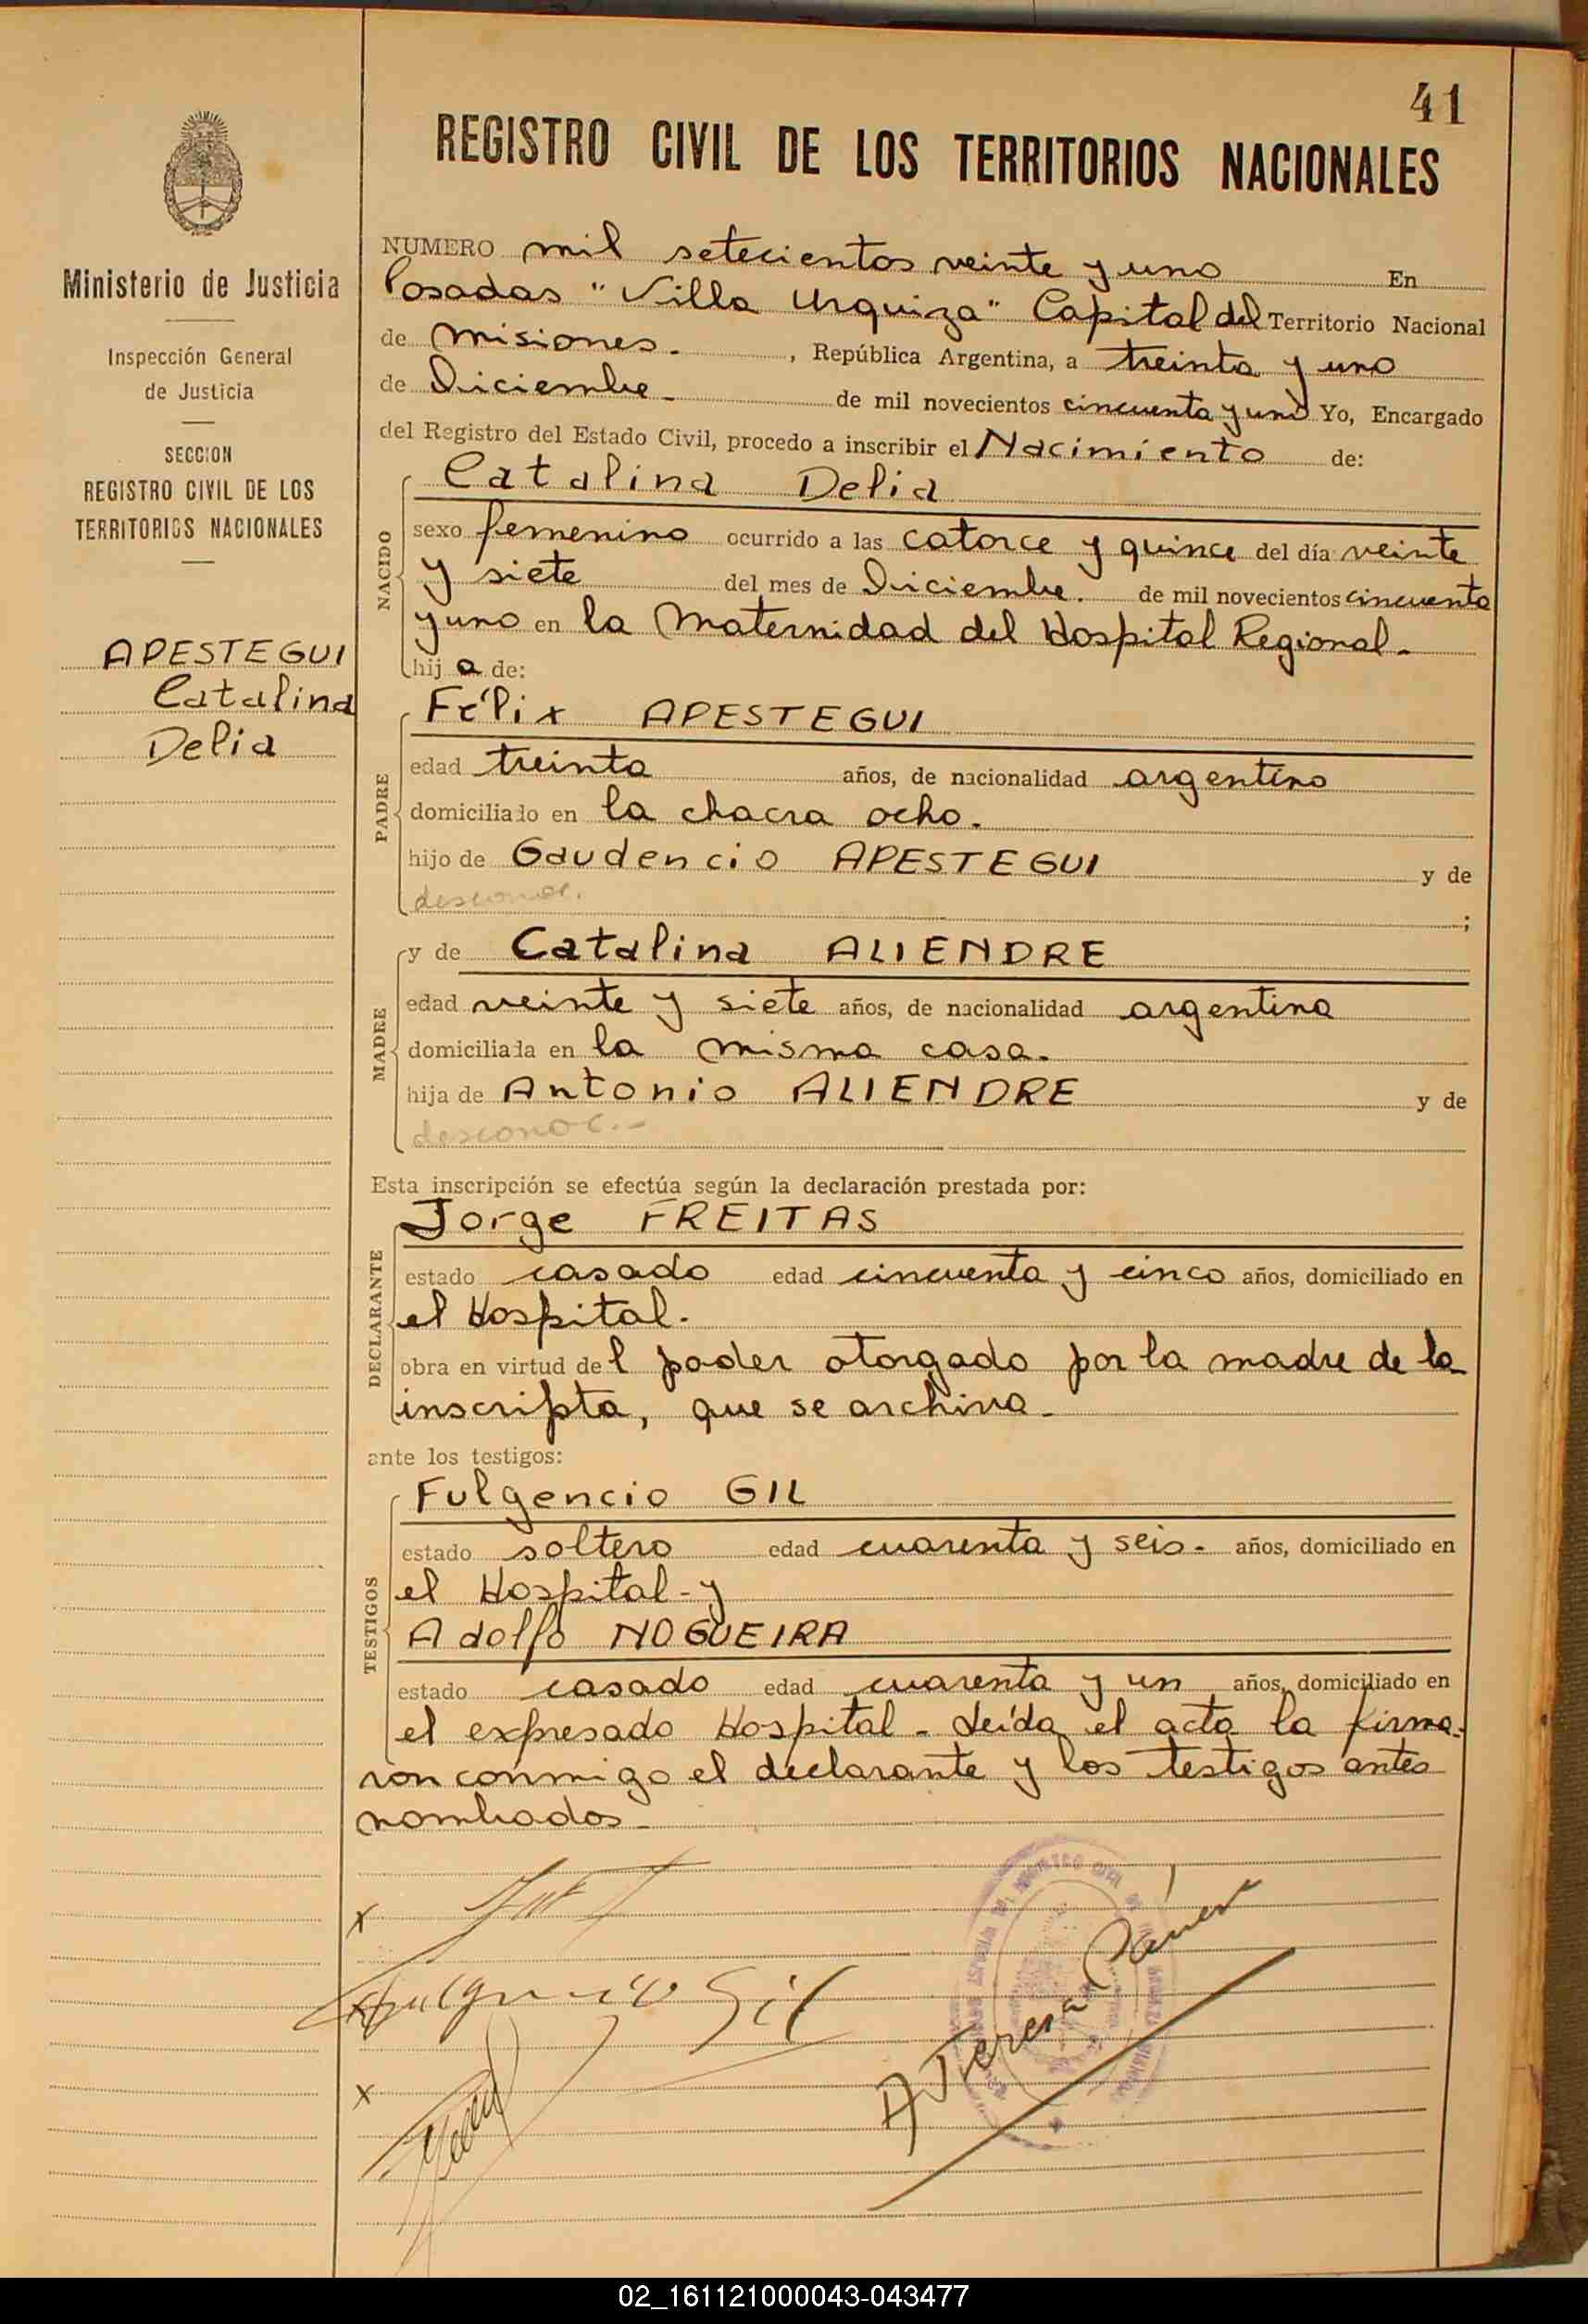 41
REGISTRO CIVIL DE LOS TERRITORIOS NACIONALES
Ministerio de Justicia
Inspección General
de Justicia
SECCION
REGISTRO CIVIL DE LOS
TERRITORIOS NACIONALES
APESTEGUI
Catalina
Delia
NUMERO mil setecientos veinte y uno En
Posadas "Villa Urquiza" Capital del Territorio Nacional
de Misiones. , República Argentina, a treinta y uno
de Diciembre de mil novecientos cincuenta y uno Yo, Encargado
del Registro del Estado Civil, procedo a inscribir el Nacimiento de:
NACIDO
Catalina Delia
sexo femenino ocurrido a las catorce y quince del día veinte
y siete del mes de Diciembre. de mil novecientos cincuenta
y uno en la Maternidad del Hospital Regional.
hija de:
PADRE
Félix APESTEGUI
edad treinta años, de nacionalidad argentino
domiciliado en la chacra ocho.
hijo de Gaudencio APESTEGUI y de
desconoc. ;
MADRE
y de Catalina ALIENDRE
edad veinte y siete años, de nacionalidad argentina
domiciliada en la misma casa.
hija de Antonio ALIENDRE y de
desconoc.-
Esta inscripción se efectúa según la declaración prestada por:
DECLARANTE
Jorge FREITAS
estado casado edad cincuenta y cinco años, domiciliado en
el Hospital.
obra en virtud del poder otorgado por la madre de la
inscripta, que se archiva.
ante los testigos:
TESTIGOS
Fulgencio GIL
estado soltero edad cuarenta y seis. años, domiciliado en
el Hospital - y
Adolfo NOGUEIRA
estado casado edad cuarenta y un años, domiciliado en
el expresado Hospital - Leída el acta la firma-
ron conmigo el declarante y los testigos antes
nombrados
x
x Fulgencio Gil
x
02_161121000043-043477